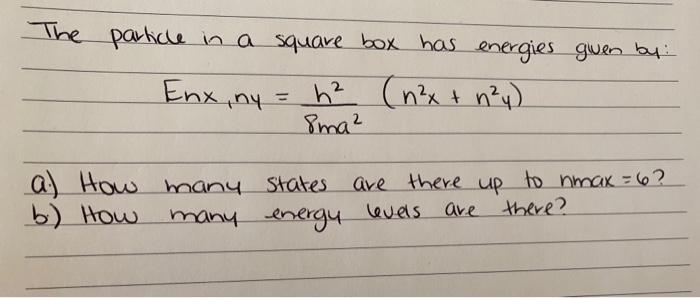 The particle in a square box has energies given by:
Enx,ny = h² (n²x + n²y)
8ma²
a.) How many states are there up to nmax = 6?
b.) How many energy levels are there?